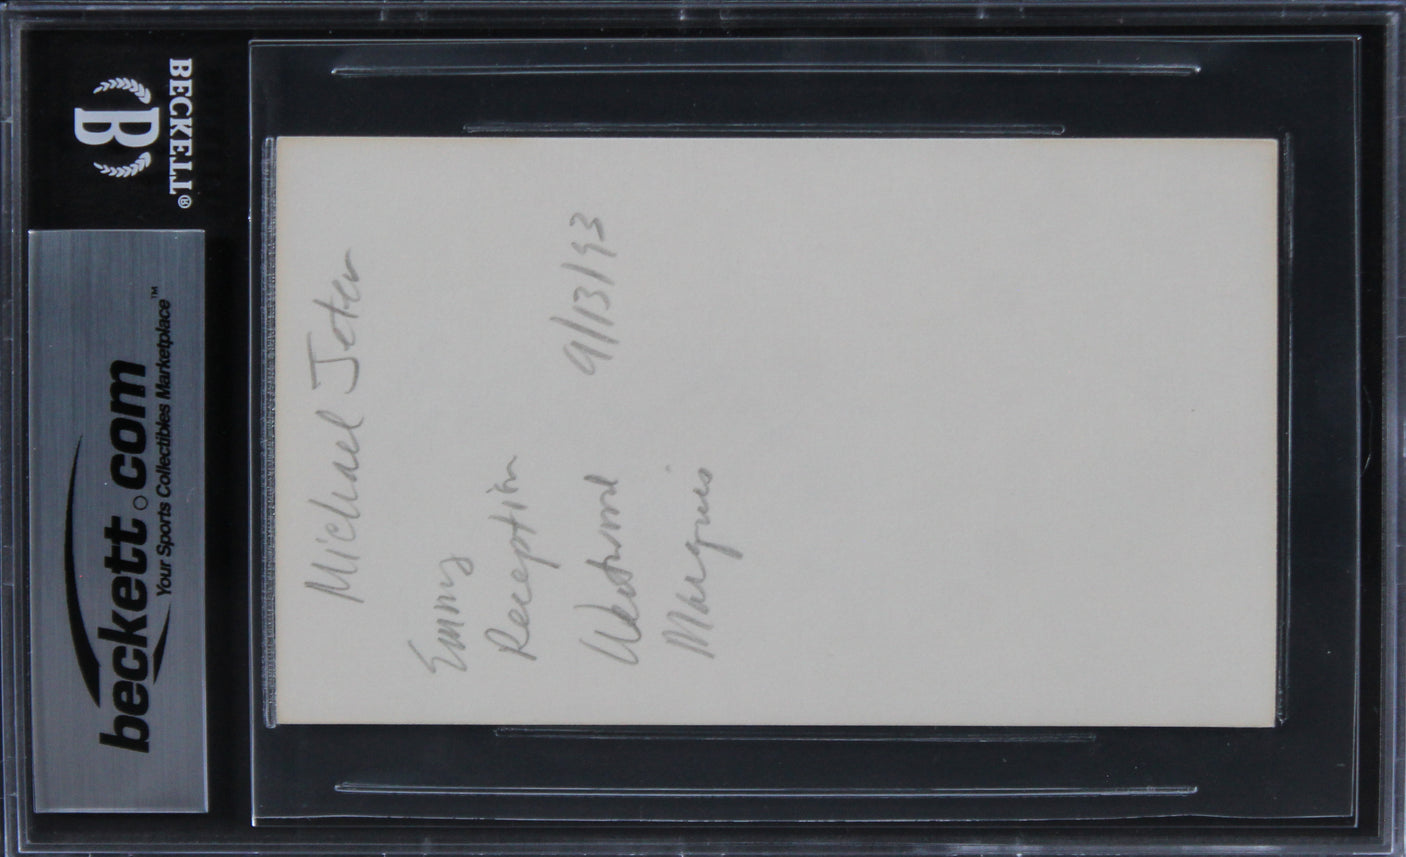 BECKETT®
B
beckett.com
Your Sports Collectibles Marketplace™
Michael Jeter
Emmy
Reception
Westwood 9/13/93
Marquis